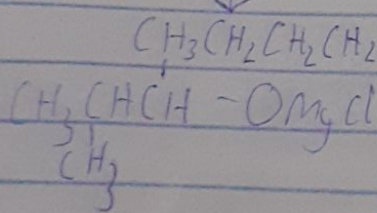 CH3CH2CH2CH2
CH3CHCH-OMgCl
CH3